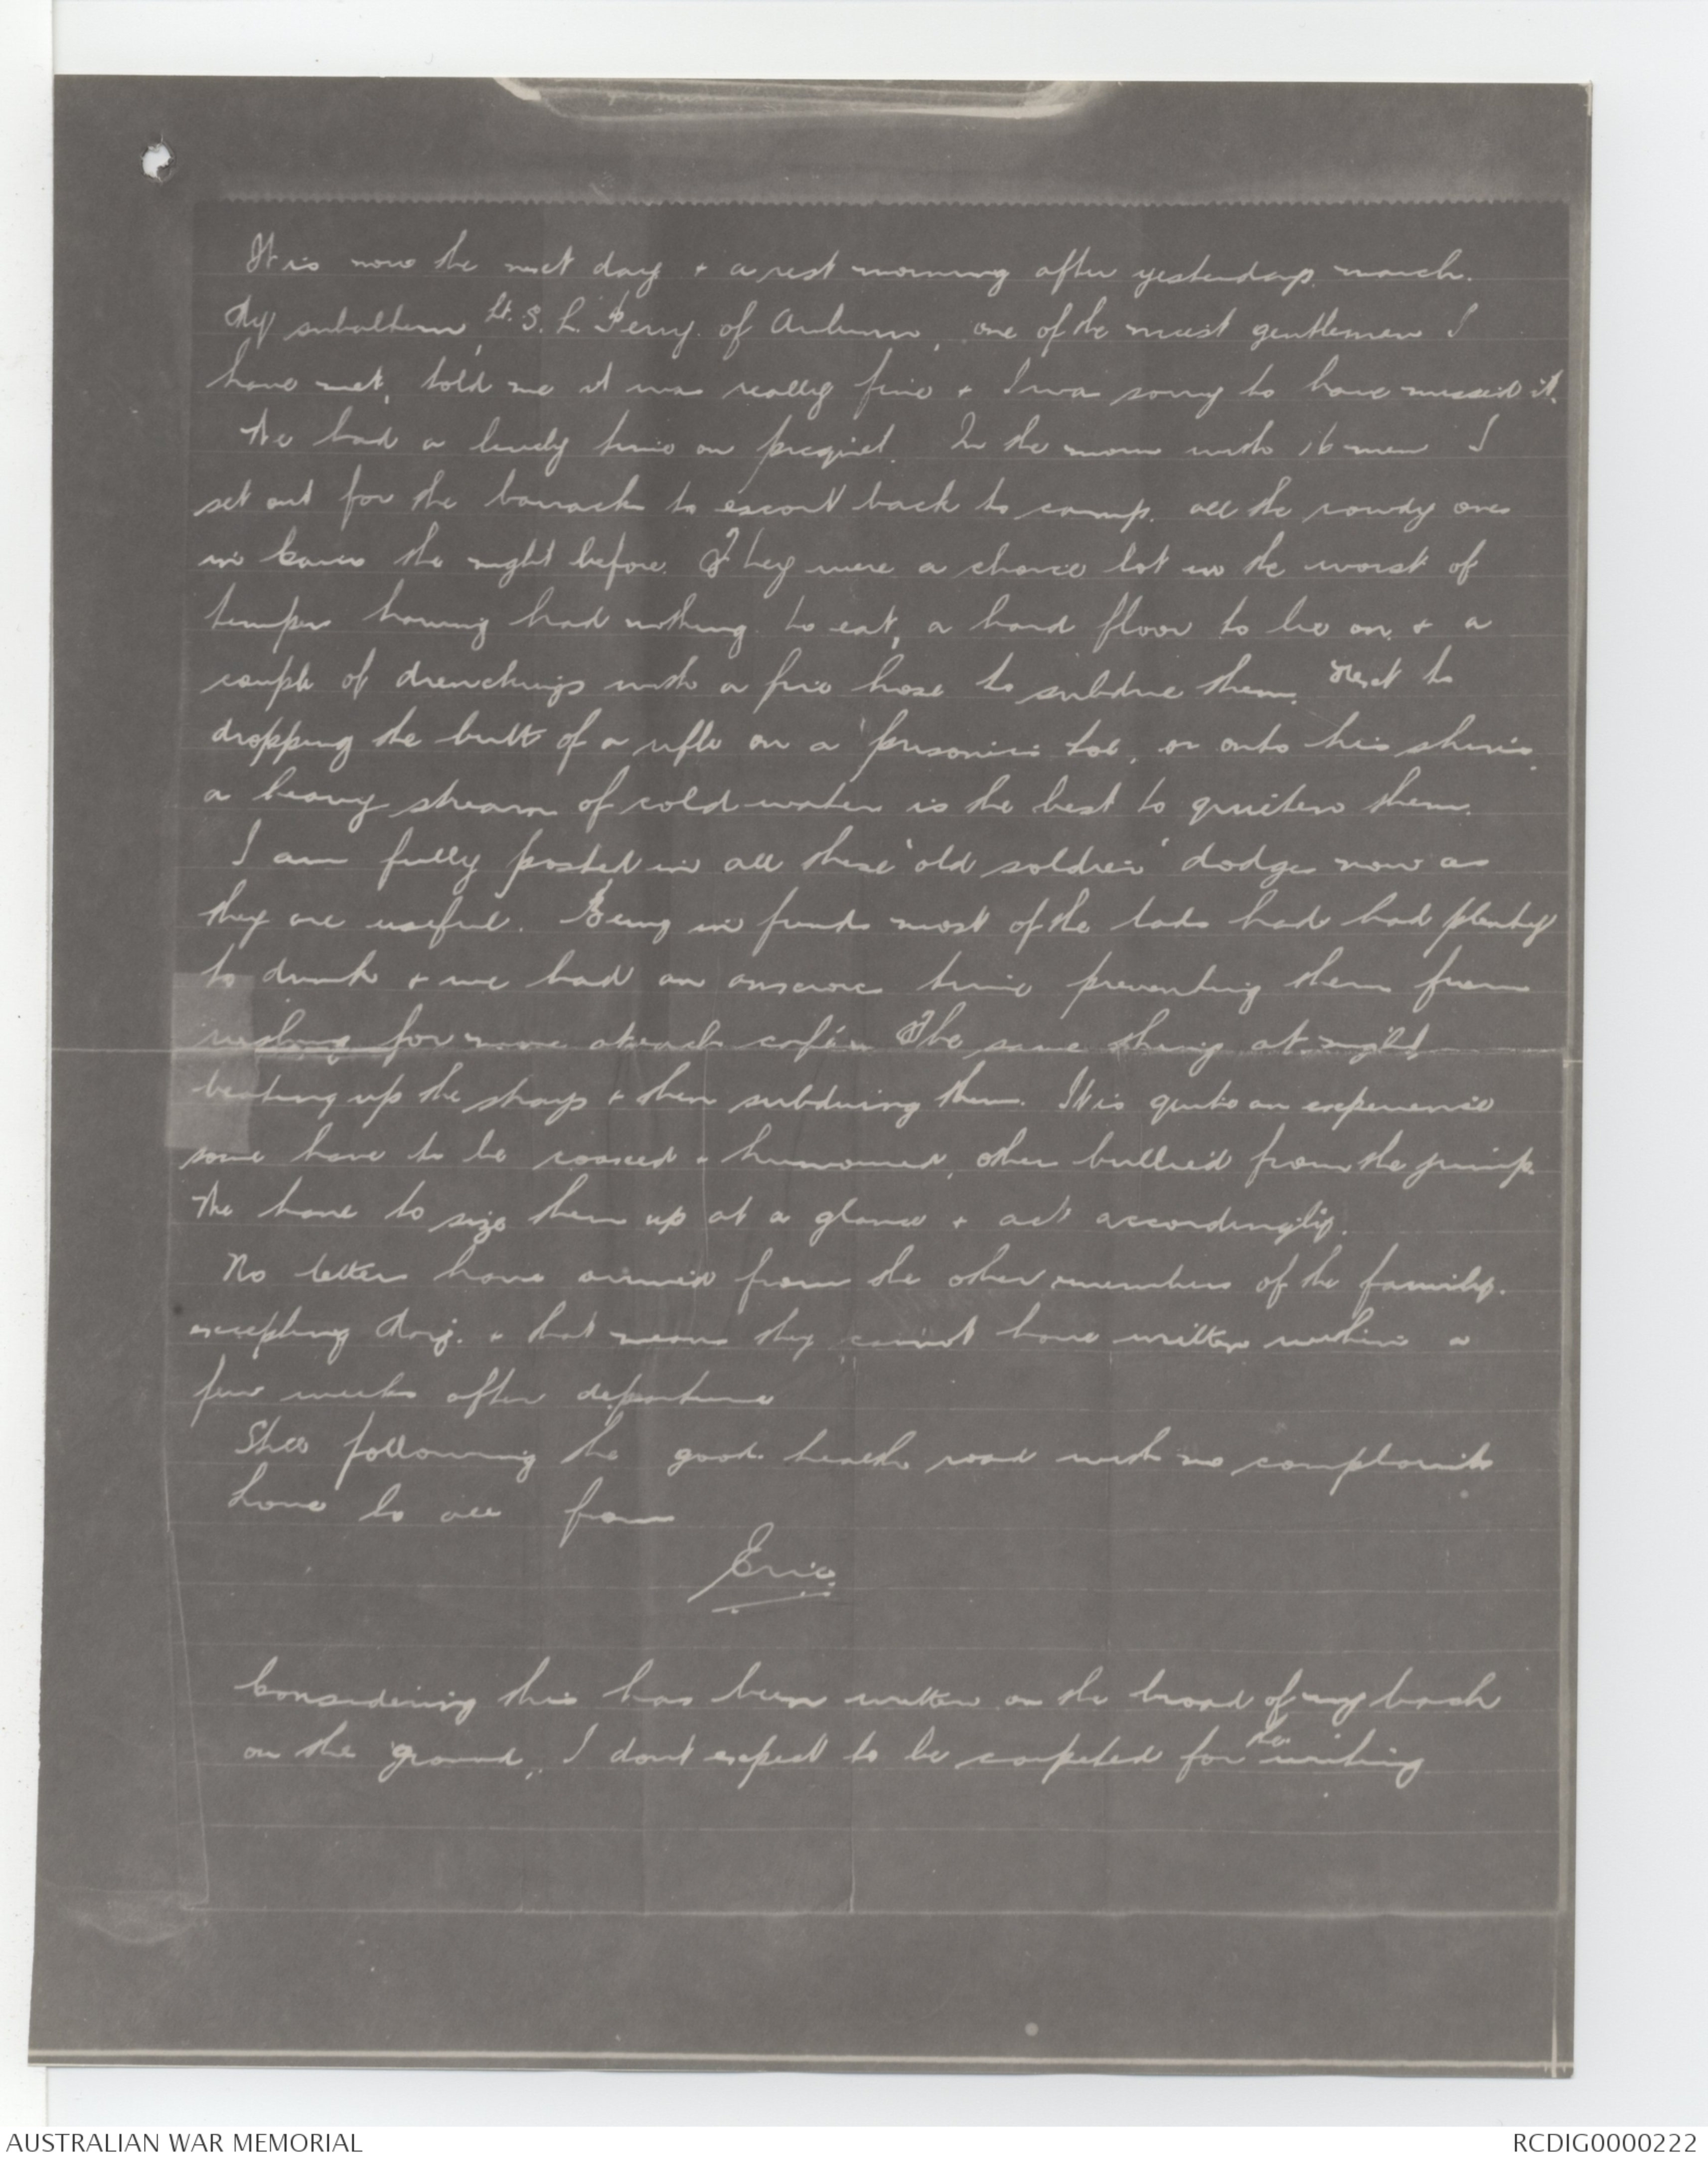 It is now the next day & a rest morning after yesterdays march.
My subaltern, Lt. S. L. Perry. of Auburn, one of the nicest gentlemen I
have met, told me it was really fine & I was sorry to have missed it.
We had a lively time on picquet. In the morn with 16 men I
set out for the barracks to escort back to camp. all the rowdy ones
in the night before. They were a choice lot in the worst of
tempers having had nothing to eat, a hard floor to lie on, & a
couple of drenchings with a fire hose to subdue them. Next to
dropping the butt of a rifle on a prisoners toe, or onto his shins,
a heavy stream of cold water is the best to quieten them.
I am fully posted in all these "old soldier" dodges now as
they are useful. Being in funds most of the lads had had plenty
to drink & we had an time preventing them from
rushing for more at each café. The same thing at night
beating up the strays & then subduing them. It is quite an experience
some have to be coaxed & humoured, others bullied from the jump.
We have to size them up at a glance & act accordingly.
No letters have arrived from the other members of the family.
excepting Marj. & that means they cannot have written within a
few weeks after departure
Still following the good health road with no complaints
Love to all from
Eric
Considering this has been written on the broad of my back
on the ground, I dont expect to be for the writing
AUSTRALIAN WAR MEMORIAL
RCDIG0000222